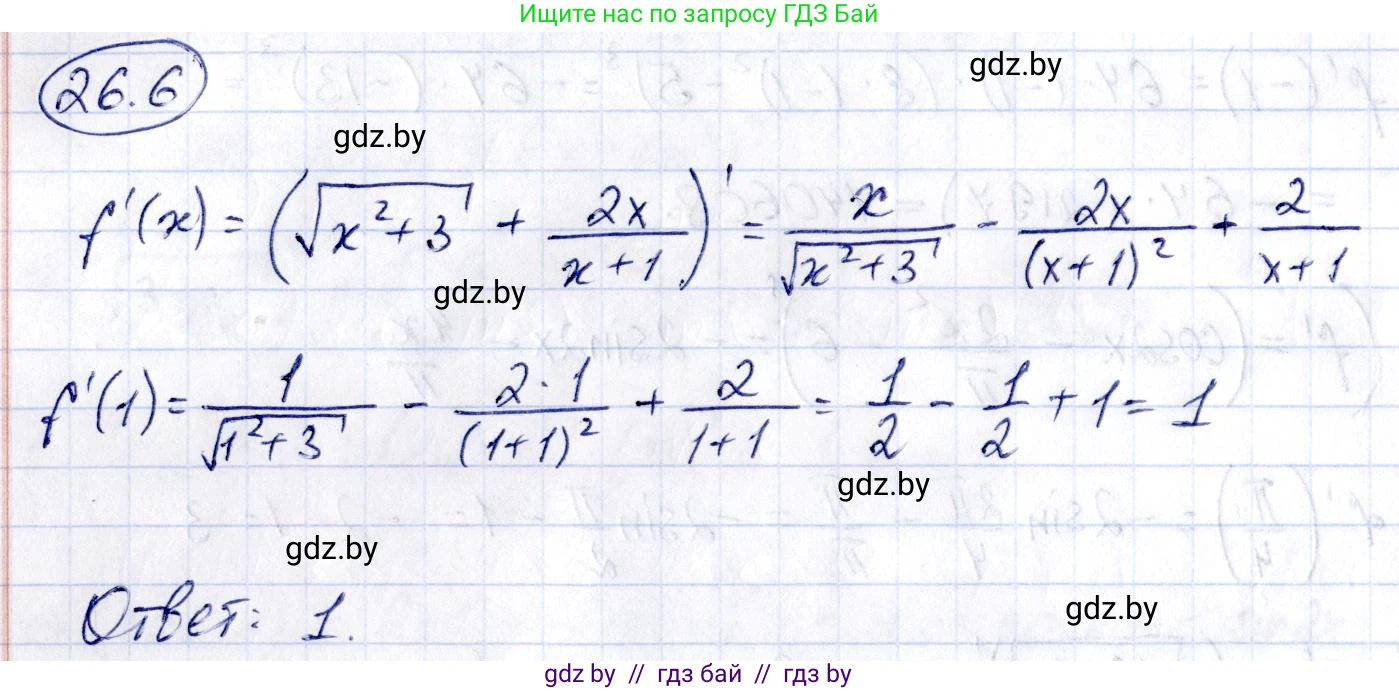 Ищите нас по запросу ГДЗ Бай
26.6
gdz.by
gdz.by
f'(x) = (√(x²+3) + 2x/(x+1))' = x/√(x²+3) - 2x/(x+1)² + 2/(x+1)
gdz.by
f'(1) = 1/√(1²+3) - 2·1/(1+1)² + 2/(1+1) = 1/2 - 1/2 + 1 = 1
gdz.by
gdz.by
Ответ: 1.
gdz.by
gdz by // гдз бай // гдз by